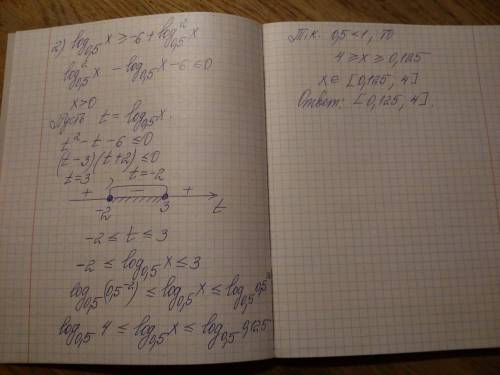 2) log₀,₅ x ≥ -6 + log²₀,₅ x
log²₀,₅ x - log₀,₅ x - 6 ≤ 0
x > 0
Пусть t = log₀,₅ x.
t² - t - 6 ≤ 0
(t-3)(t+2) ≤ 0
t=3 t=-2
+ − +
-2 3 t
-2 ≤ t ≤ 3
-2 ≤ log₀,₅ x ≤ 3
log₀,₅ (0,5⁻²) ≤ log₀,₅ x ≤ log₀,₅ 0,5³
log₀,₅ 4 ≤ log₀,₅ x ≤ log₀,₅ 0,125
Т.к. 0,5 < 1, то
4 ≥ x ≥ 0,125
x ∈ [0,125, 4]
Ответ: [0,125, 4].